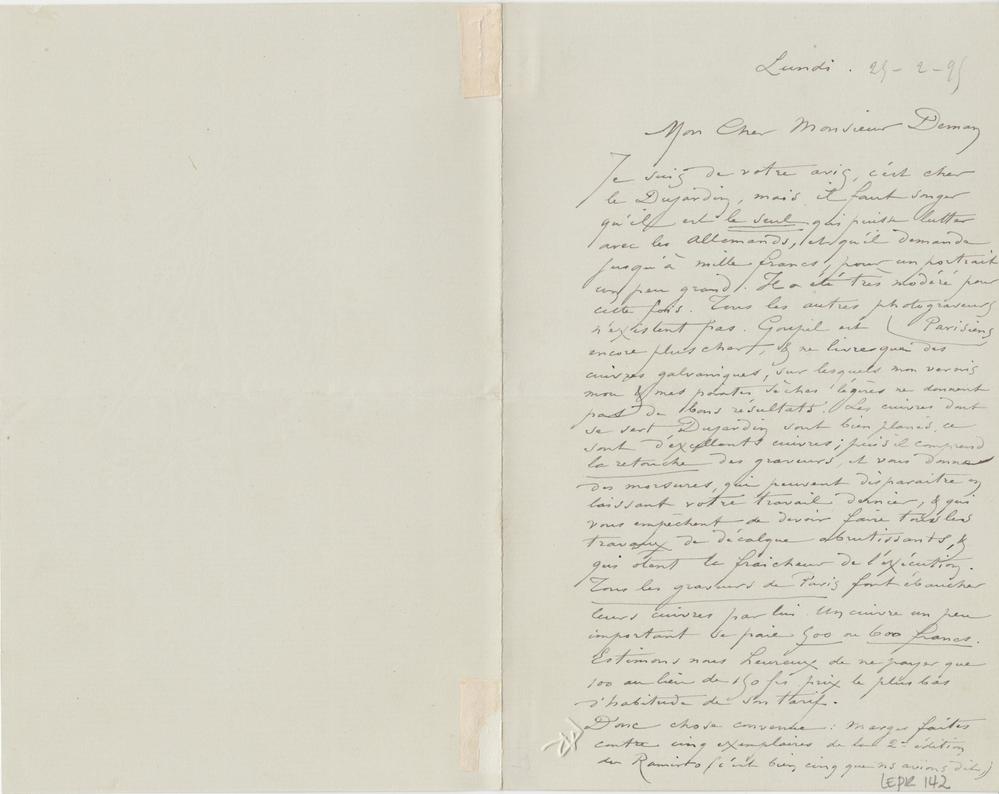 Lundi. 25-2-95
Mon Cher Monsieur Deman
Je suis de votre avis, c'est cher
le Dujardin, mais il faut songer
qu'il est le seul qui puisse lutter
avec les Allemands, et qu'il demande
jusqu'à mille francs, pour un portrait
un peu grand. Il a été très modéré pour
cette fois. Tous les autres photograveurs
n'existent pas. Goupil est ( Parisiens
encore plus cher, & ne livre que des
cuivres galvaniques, sur lesquels mon vernis
mou & mes pointes sèches légères ne donnent
pas de bons résultats. Les cuivres dont
se sert Dujardin sont bien planés, ce
sont d'excellents cuivres; puis il comprend
la retouche des graveurs, et vous donne
des morsures, qui peuvent disparaitre en
laissant votre travail dernier, & qui
vous empêchent de devoir faire tous les
travaux de décalque abrutissants, &
qui otent la fraicheur de l'éxécution.
Tous les graveurs de Paris font ébaucher
leurs cuivres par lui. Un cuivre un peu
important se paie 500 ou 600 francs.
Estimons nous heureux de ne payer que
100 au lieu de 150 frs, prix le plus bas
d'habitude de son tarif.
Donc chose convenue: faites
contre cinq exemplaires de la 2e édition
du Ramiro (c'est bien cinq que ns avions dit,)
LEPR 142